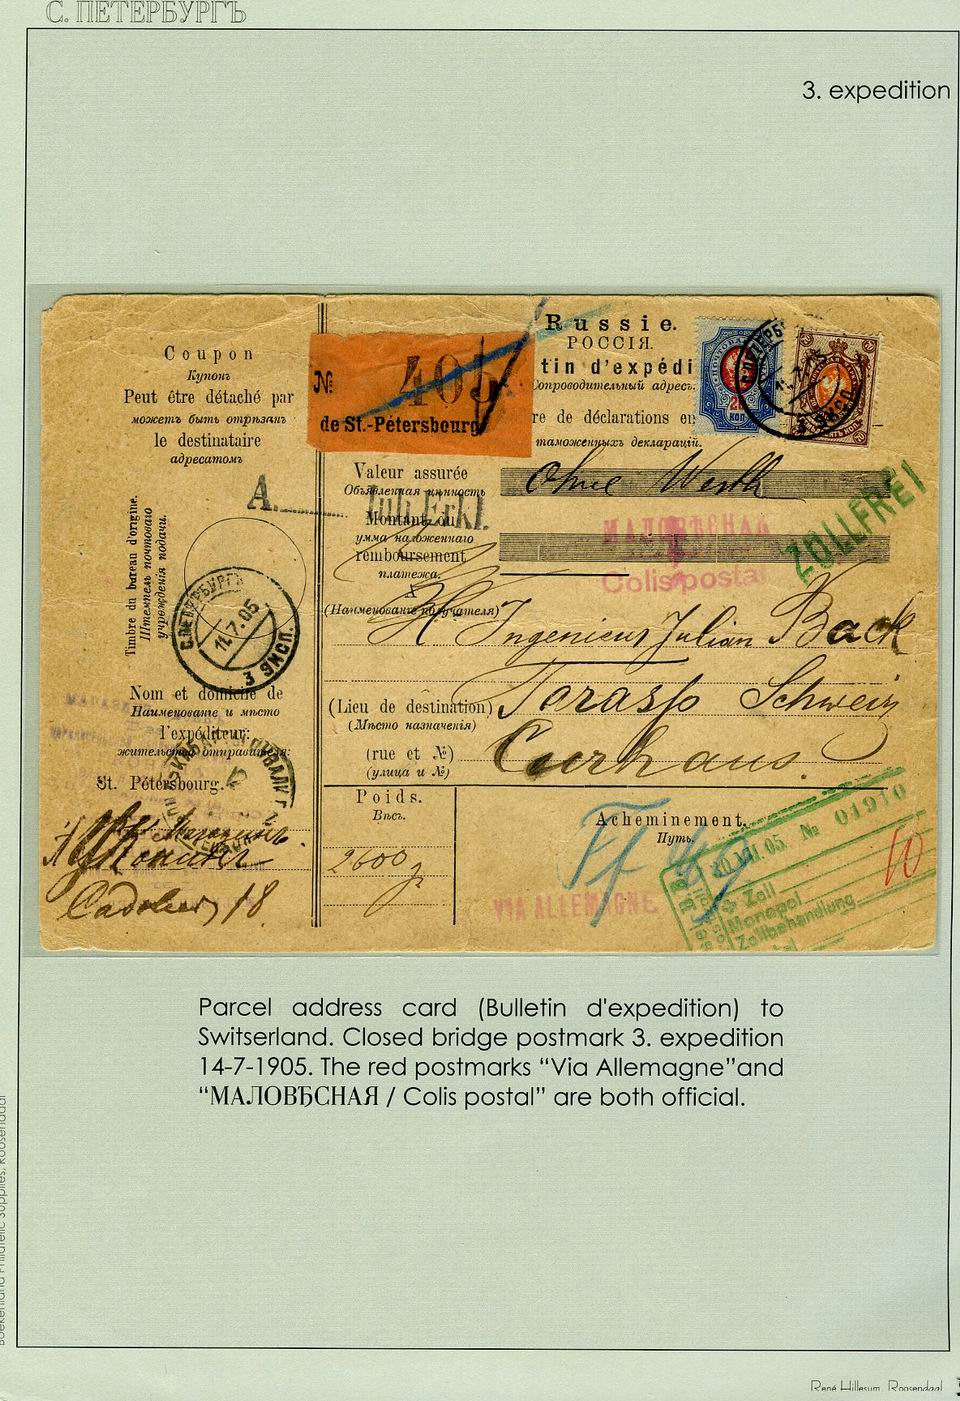 С. ПЕТЕРБУРГЪ
3. expedition
Coupon
Купонъ
Peut être détaché par
можетъ быть отрѣзанъ
le destinataire
адресатомъ
Timbre du bureau d'origine.
Штемпель почтоваго
учрежденія подачи.
С.ПЕТЕРБУРГЪ
11.7.05
3 ЭКСП.
Nom et domicile de
Наименованіе и мѣсто
l'expéditeur:
жительство отправителя:
St. Pétersbourg.
18
№ 405
de St.-Pétersbourg
Russie.
РОССІЯ.
tin d'expédi
Сопроводительный адресъ.
re de déclarations en
таможенныхъ декларацій.
20 КОП
3 ЭКСП.
A.
Inh. Erkl.
Valeur assurée
Объявленная цѣнность
Ohne Werth
Montant du
сумма наложеннаго
remboursement
платежа.
МАЛОВѢСНАЯ
Colis postal
ZOLLFREI
(Наименованіе получателя)
H Ingenieur Julian Back
(Lieu de destination)
(Мѣсто назначенія)
Tarasp Schweiz
(rue et №)
(улица и №)
Curhaus.
Poids.
Вѣсъ.
2600 g
Acheminement.
Путь.
VIA ALLEMAGNE
№ 01910
10
VII.05
Zoll
Monopol
Zollbehandlung
Parcel address card (Bulletin d'expedition) to
Switserland. Closed bridge postmark 3. expedition
14-7-1905. The red postmarks “Via Allemagne”and
“МАЛОВѢСНАЯ / Colis postal” are both official.
Boekenland Philatelic Supplies, Roosendaal
René Hillesum, Roosendaal